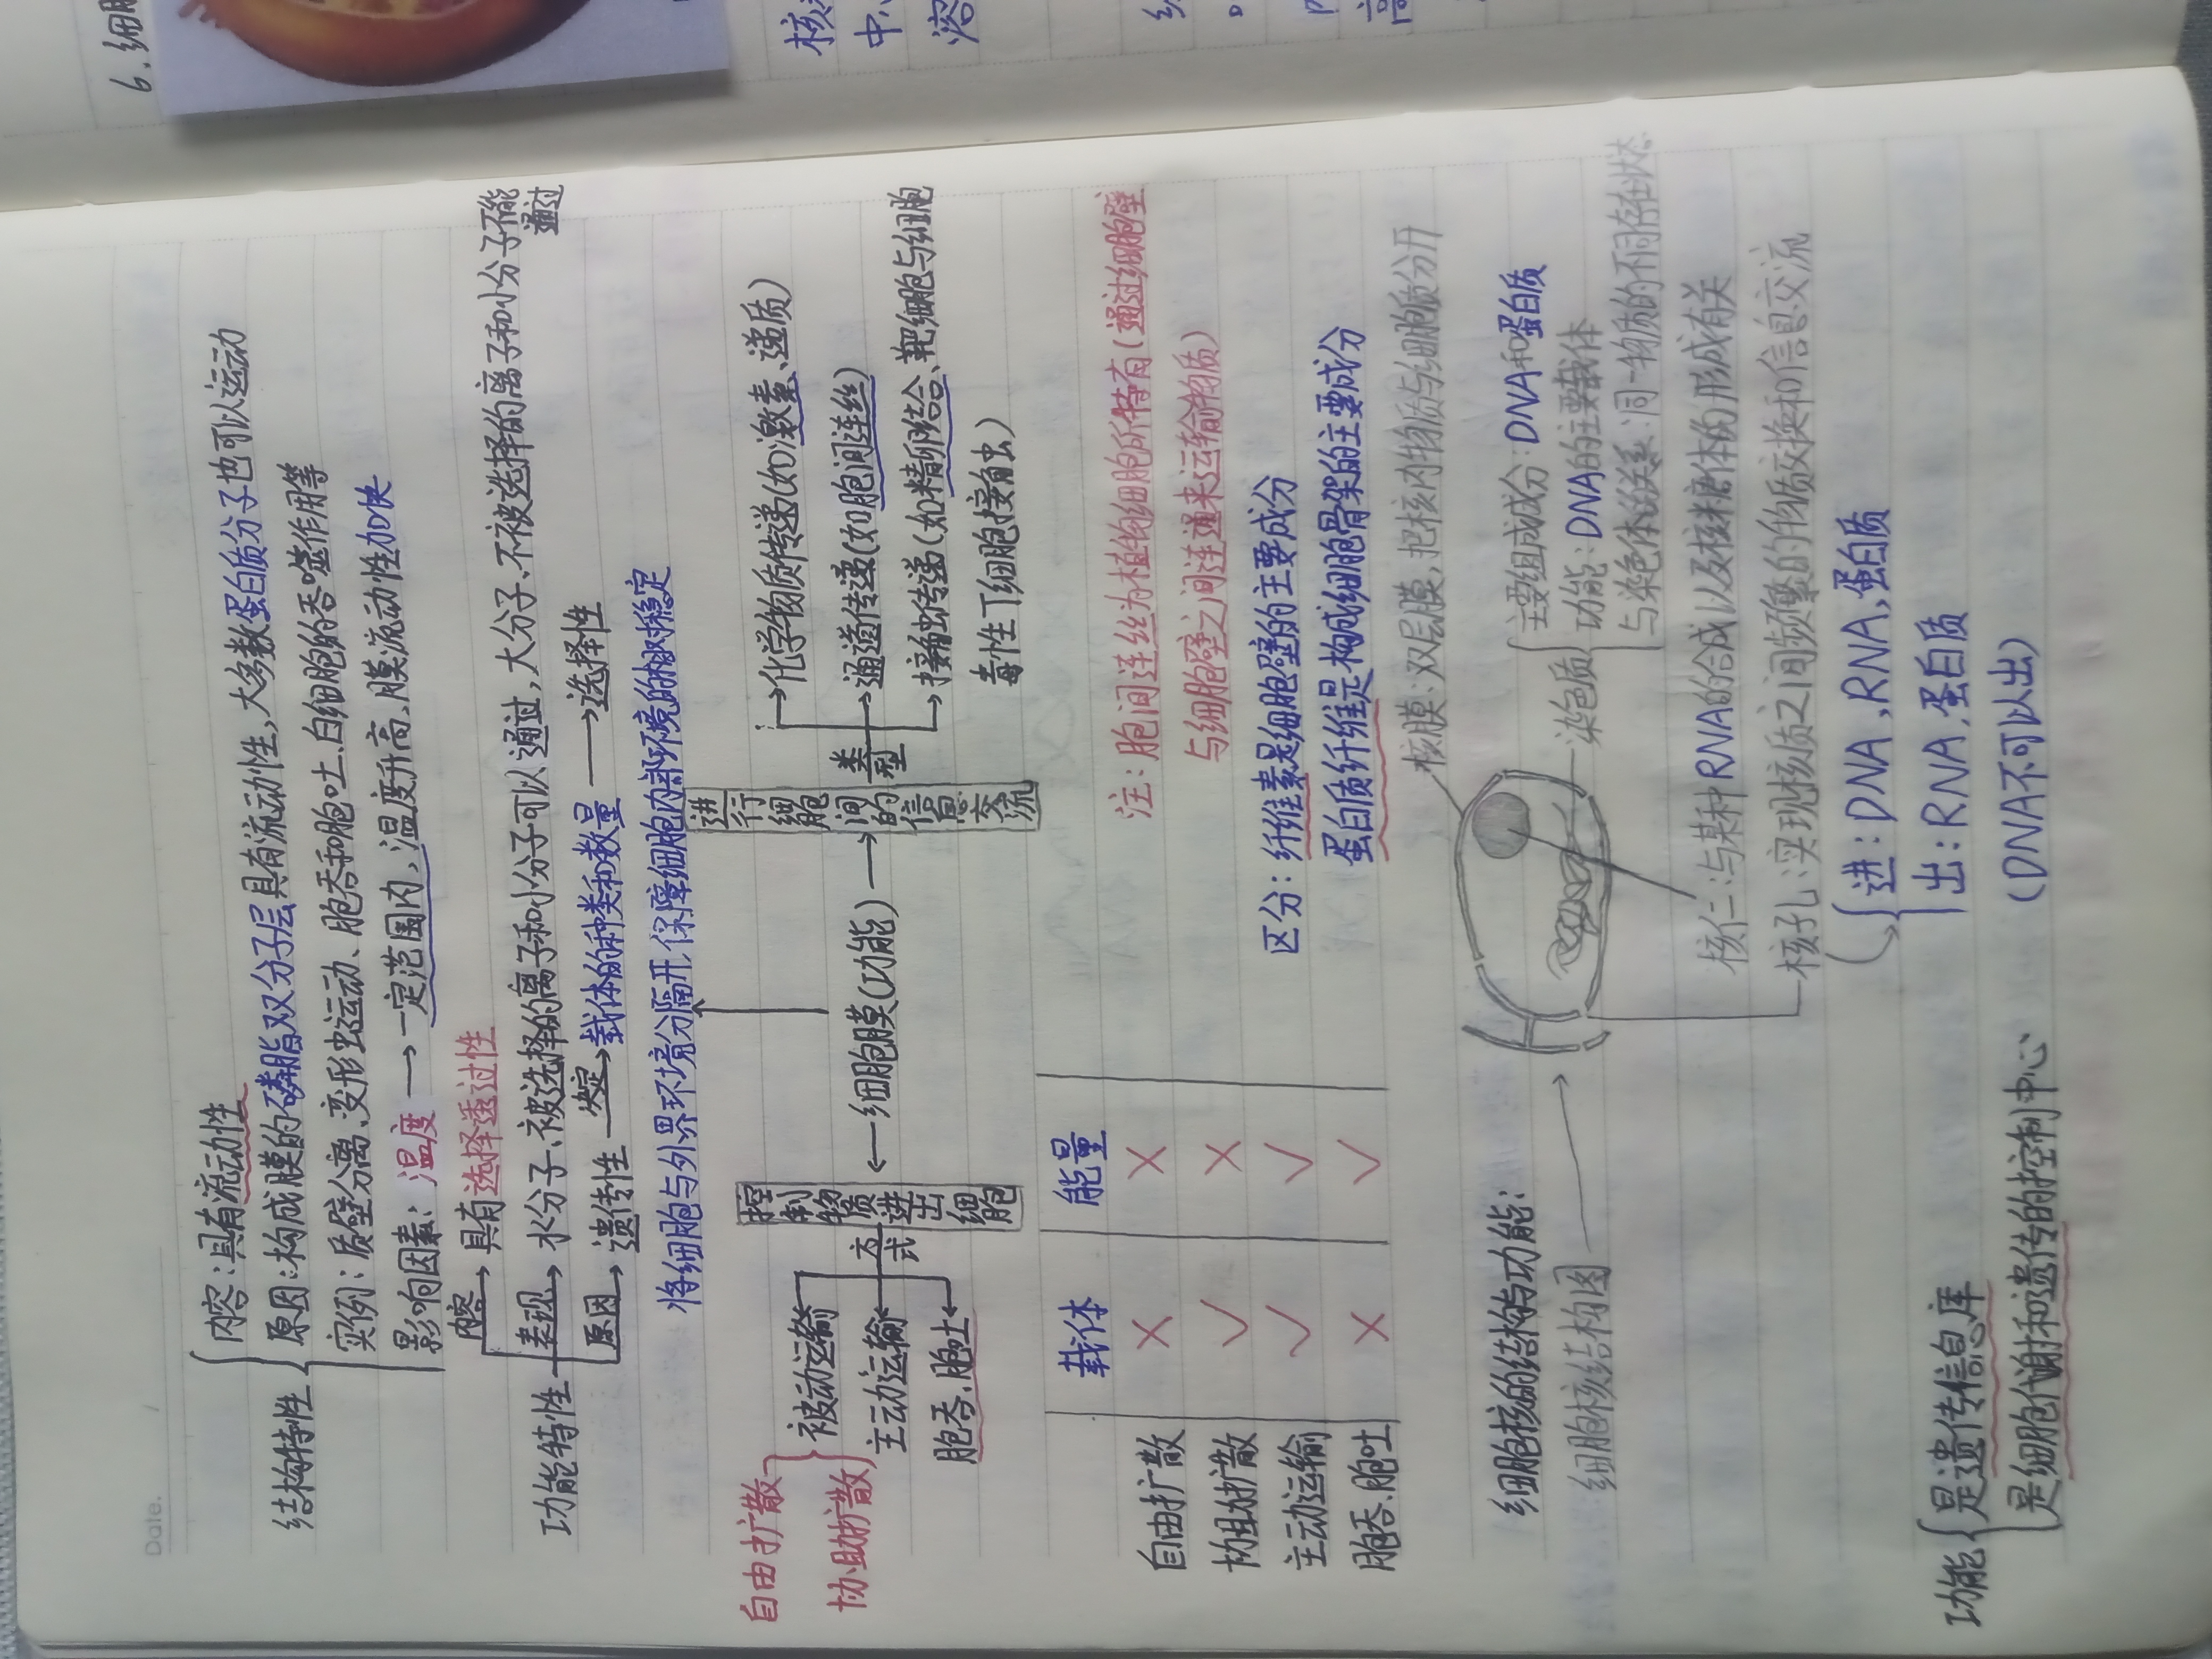 Date.
结构特性
内容：具有流动性
原因：构成膜的磷脂双分子层具有流动性，大多数蛋白质分子也可以运动
实例：质壁分离、变形虫运动、胞吞和胞吐、白细胞的吞噬作用等
影响因素：温度→一定范围内，温度升高，膜流动性加快
功能特性
内容→具有选择透过性
表现→水分子、被选择的离子和小分子可以通过，大分子、不被选择的离子和小分子不能通过
原因→遗传性 决定→载体的种类和数量→选择性
将细胞与外界环境分隔开，保障细胞内部环境的相对稳定
自由扩散
协助扩散
被动运输
主动运输
胞吞、胞吐
方式
控制物质进出细胞
←细胞膜(功能)→
进行细胞间的信息交流
类型
→化学物质传递(如激素、递质)
→通道传递(如胞间连丝)
→接触传递(如精卵结合、靶细胞与细胞
毒性T细胞接触)
载体 能量
自由扩散 × ×
协助扩散 √ ×
主动运输 √ √
胞吞、胞吐 × √
注：胞间连丝为植物细胞所特有(通过细胞壁
与细胞壁之间连通来运输物质)
区分：纤维素是细胞壁的主要成分
蛋白质纤维是构成细胞骨架的主要成分
细胞核的结构与功能：
细胞核结构图
核膜：双层膜，把核内物质与细胞质分开
染色质
主要组成成分：DNA和蛋白质
功能：DNA的主要载体
与染色体的关系：同一物质的不同存在状态
核仁：与某种RNA的合成以及核糖体的形成有关
核孔：实现核质之间频繁的物质交换和信息交流
进：DNA，RNA，蛋白质
出：RNA，蛋白质
(DNA不可以出)
功能
是遗传信息库
是细胞代谢和遗传的控制中心
6.细胞
核
中
溶